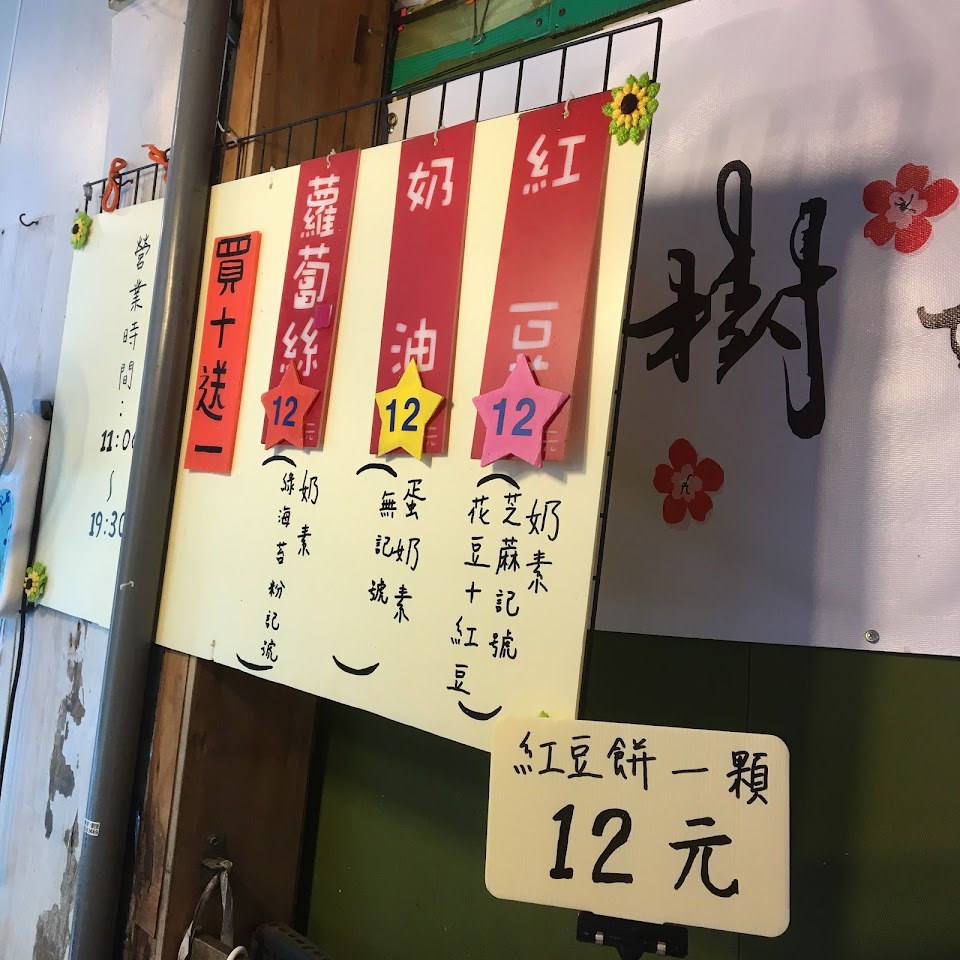 紅豆
12元
奶素
芝蔴記號
(花豆+紅豆)
奶油
12元
蛋奶素
(無記號)
蘿蔔絲
12元
奶素
(綠海苔粉記號)
買十送一
營業時間:
11:00
~
19:30
樹
紅豆餅一顆
12元